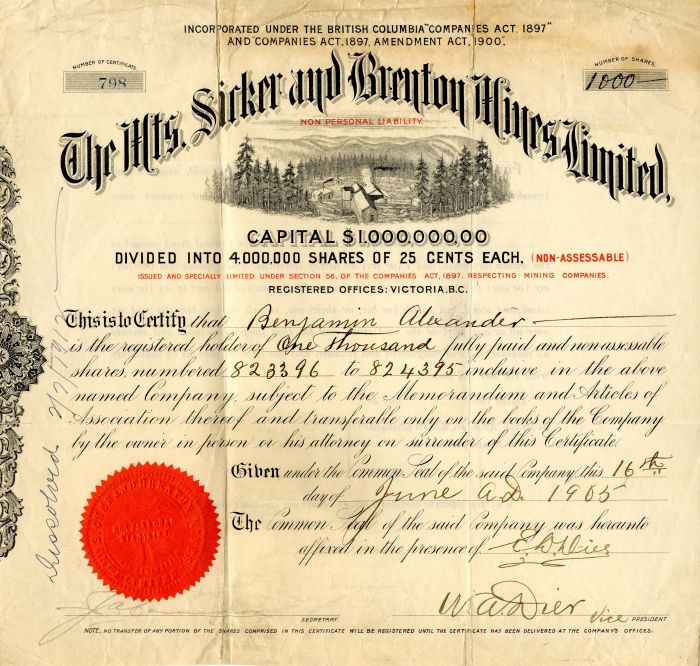 INCORPORATED UNDER THE BRITISH COLUMBIA "COMPANIES ACT, 1897"
AND "COMPANIES ACT, 1897, AMENDMENT ACT, 1900".
NUMBER OF CERTIFICATE
798
NUMBER OF SHARES
1000
The Mts. Sicker and Brenton Mines Limited,
NON PERSONAL LIABILITY.
CAPITAL $1,000,000,00
DIVIDED INTO 4,000,000 SHARES OF 25 CENTS EACH, (NON-ASSESSABLE)
ISSUED AND SPECIALLY LIMITED UNDER SECTION 56, OF THE COMPANIES ACT, 1897, RESPECTING MINING COMPANIES.
REGISTERED OFFICES: VICTORIA, B.C.
This is to Certify that Benjamin Alexander
is the registered holder of One thousand fully paid and nonassessable
shares, numbered 823396 to 824395 inclusive in the above
named Company, subject to the Memorandum and Articles of
Association thereof and transferable only on the books of the Company
by the owner in person or his attorney on surrender of this Certificate.
Given under the Common Seal of the said Company, this 16th
day of June A.D. 1905
The Common Seal of the said Company was hereunto
affixed in the presence of E. D. Dier
W. A. Dier
Vice PRESIDENT.
SECRETARY.
NOTE, NO TRANSFER OF ANY PORTION OF THE SHARES COMPRISED IN THIS CERTIFICATE WILL BE REGISTERED UNTIL THE CERTIFICATE HAS BEEN DELIVERED AT THE COMPANY'S OFFICES.
Dissolved